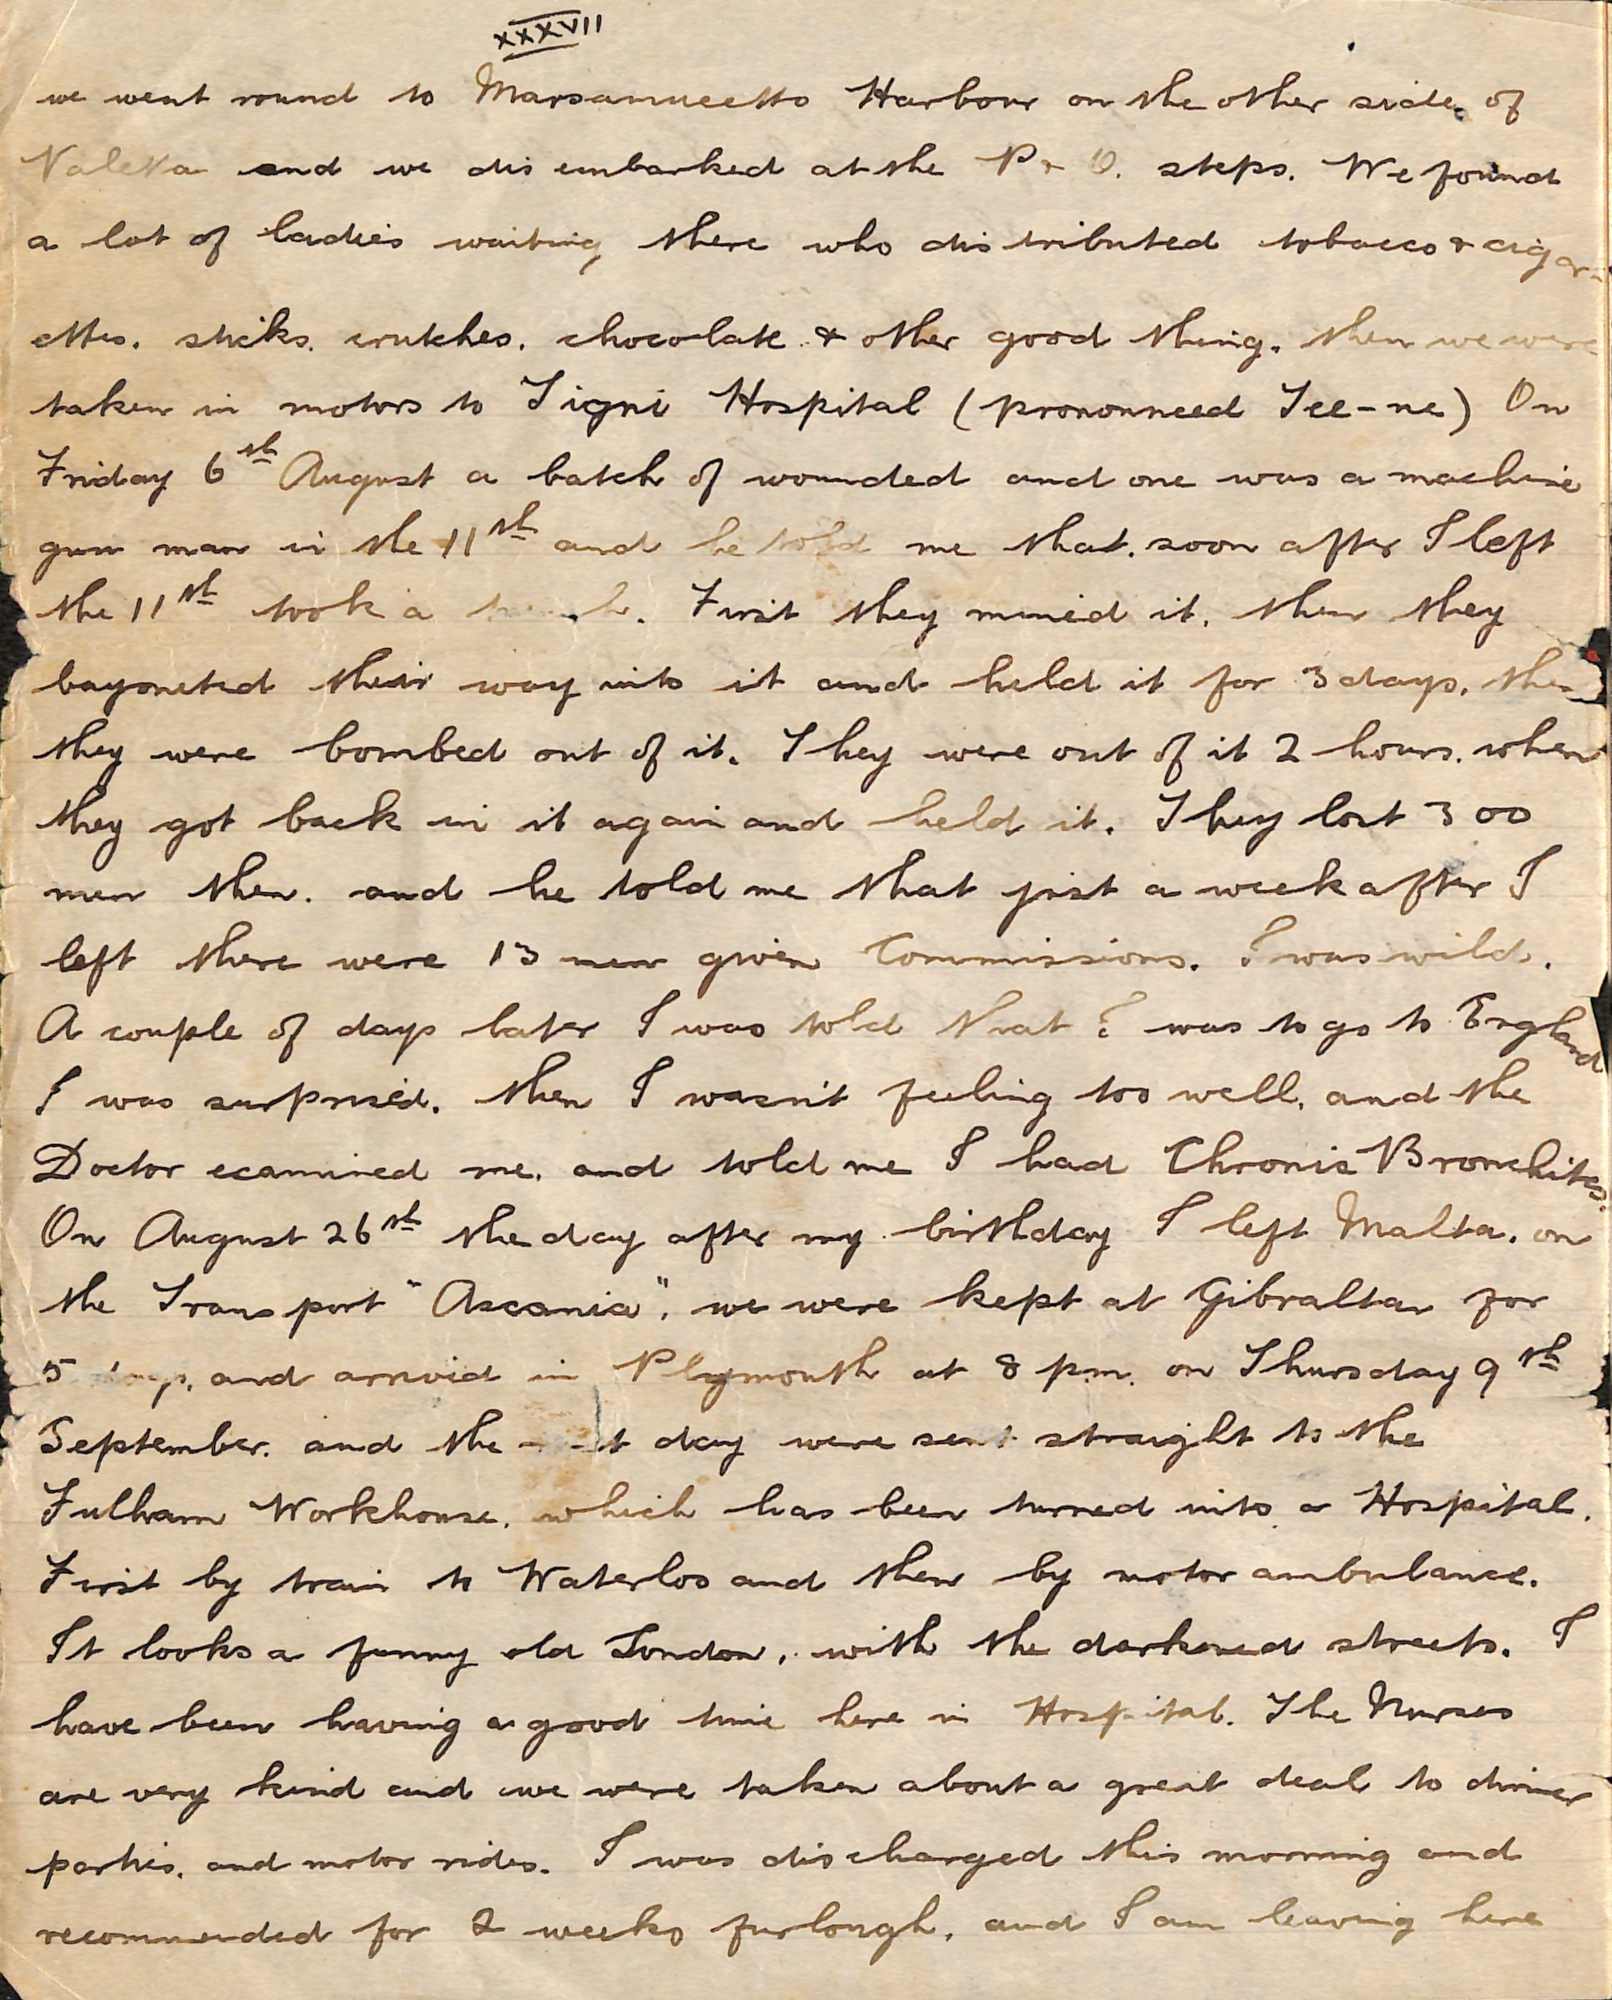 XXXVII
we went round to Marsamuceetto Harbour on the other side of
Valetta and we disembarked at the P & O. steps. We found
a lot of ladies waiting there who distributed tobacco & cigar-
ettes. sticks. crutches. chocolate & other good thing. then we were
taken in motors to Tigni Hospital (pronounced Tee-ne) On
Friday 6th August a batch of wounded and one was a machine
gun man in the 11th and he told me that. soon after I left
the 11th took a trench. First they mined it. then they
bayoneted their way into it and held it for 3 days. then
they were bombed out of it. They were out of it 2 hours. when
they got back in it again and held it. They lost 300
men then. and he told me that just a week after I
left there were 13 men given Commissions. I was wild.
A couple of days later I was told that I was to go to England
I was surprised. then I wasn't feeling too well. and the
Doctor examined me. and told me I had Chronic Bronchites.
On August 26th the day after my birthday I left Malta. on
the Transport "Ascania". we were kept at Gibraltar for
5 days. and arrived in Plymouth at 8 p.m. on Thursday 9th
September. and the next day were sent straight to the
Fulham Workhouse. which has been turned into a Hospital.
First by train to Waterloo and then by motor ambulance.
It looks a funny old London, with the darkened streets. I
have been having a good time here in Hospital. The Nurses
are very kind and we were taken about a great deal to dinner
parties. and motor rides. I was discharged this morning and
recommended for 2 weeks furlough, and I am leaving here